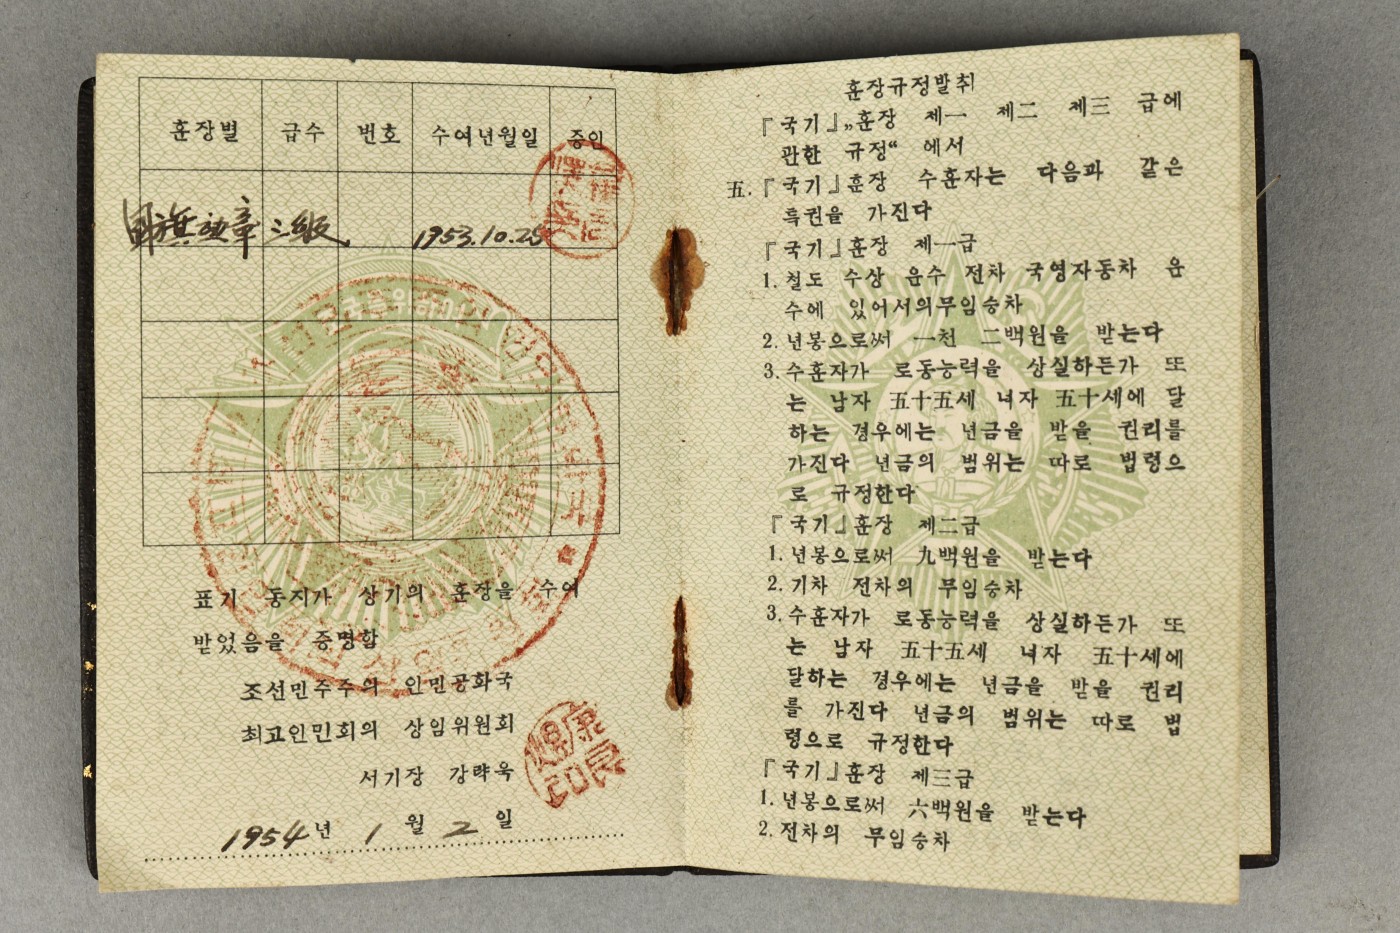 훈장별 급수 번호 수여년월일 증인
国旗勋章 三级 1953.10.25
표기 동지가 상기의 훈장을 수여
받었음을 증명함
조선민주주의 인민공화국
최고인민회의 상임위원회
서기장 강략욱
康良煜印
1954년 1월 2일
훈장규정발취
『국기』„훈장 제一 제二 제三 급에
관한 규정“ 에서
五.『국기』훈장 수훈자는 다음과 같은
특권을 가진다
『국기』훈장 제一급
1. 철도 수상 운수 전차 국영자동차 운
수에 있어서의무임승차
2. 년봉으로써 一천 二백원을 받는다
3. 수훈자가 로동능력을 상실하든가 또
는 남자 五十五세 녀자 五十세에 달
하는 경우에는 년금을 받을 권리를
가진다 년금의 범위는 따로 법령으
로 규정한다
『국기』훈장 제二급
1. 년봉으로써 九백원을 받는다
2. 기차 전차의 무임승차
3. 수훈자가 로동능력을 상실하든가 또
는 남자 五十五세 녀자 五十세에
달하는 경우에는 년금을 받을 권리
를 가진다 년금의 범위는 따로 법
령으로 규정한다
『국기』훈장 제三급
1. 년봉으로써 六백원을 받는다
2. 전차의 무임승차